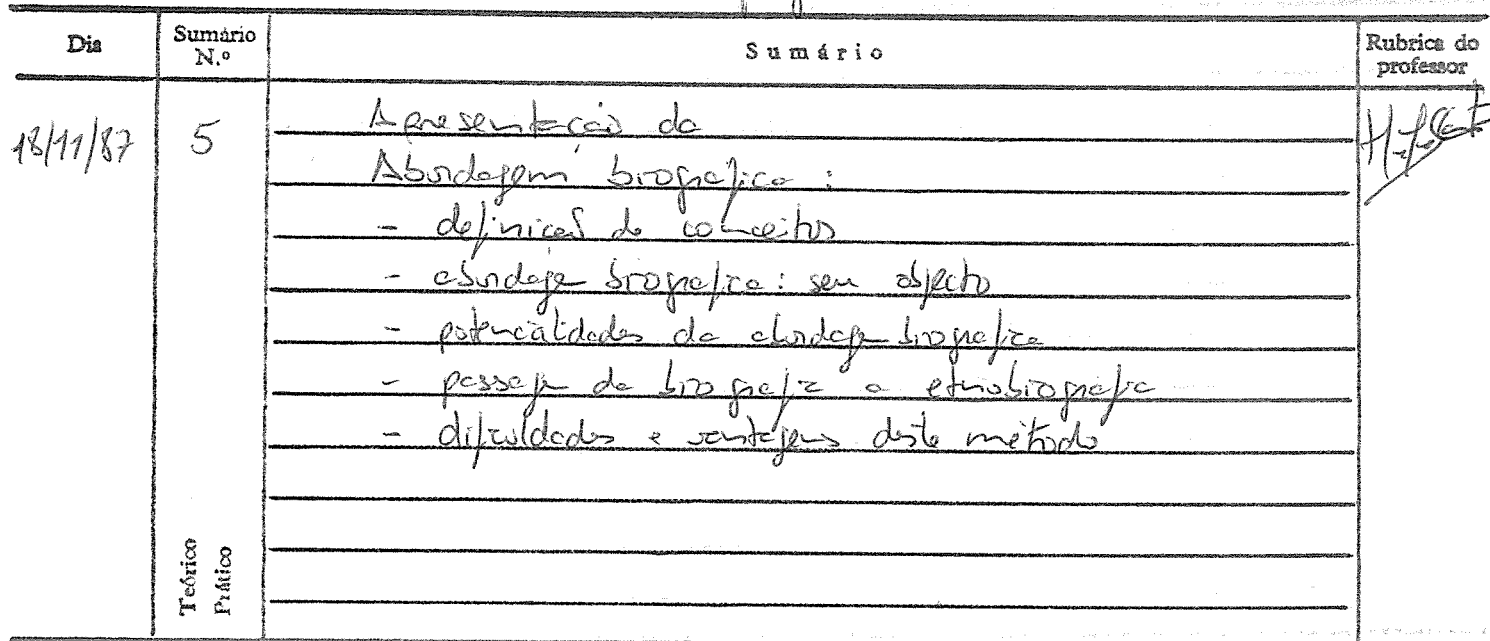 Dia
Sumário N.º
Sumário
Rubrica do professor
18/11/87
5
Apresentação da
Abordagem biografica :
- definição de conceitos
- abordagem biografica : seu objecto
- potencialidades da abordagem biografica
- passagem da biografia a etnobiografia
- dificuldades e vantagens deste método
Teórico
Prático